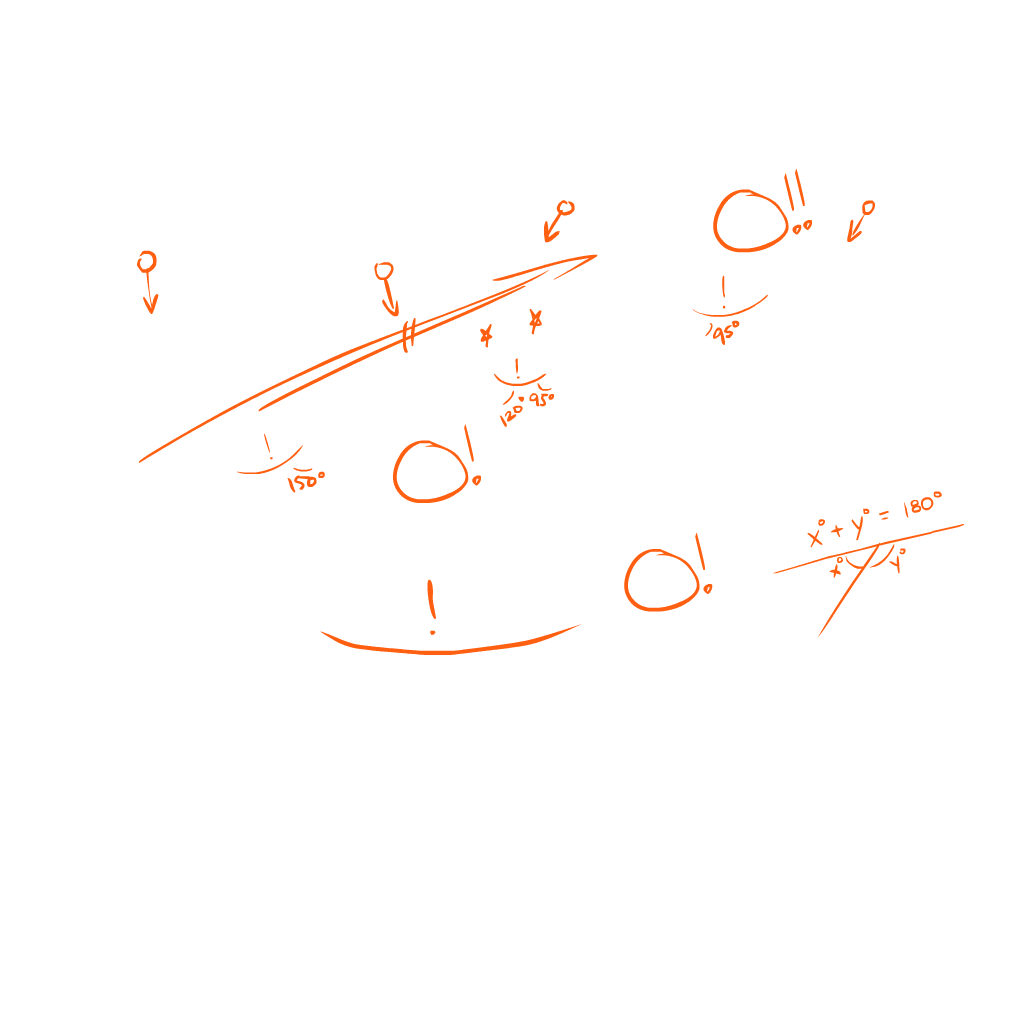 95°
120° 95°
150°
x° + y° = 180°
x° y°